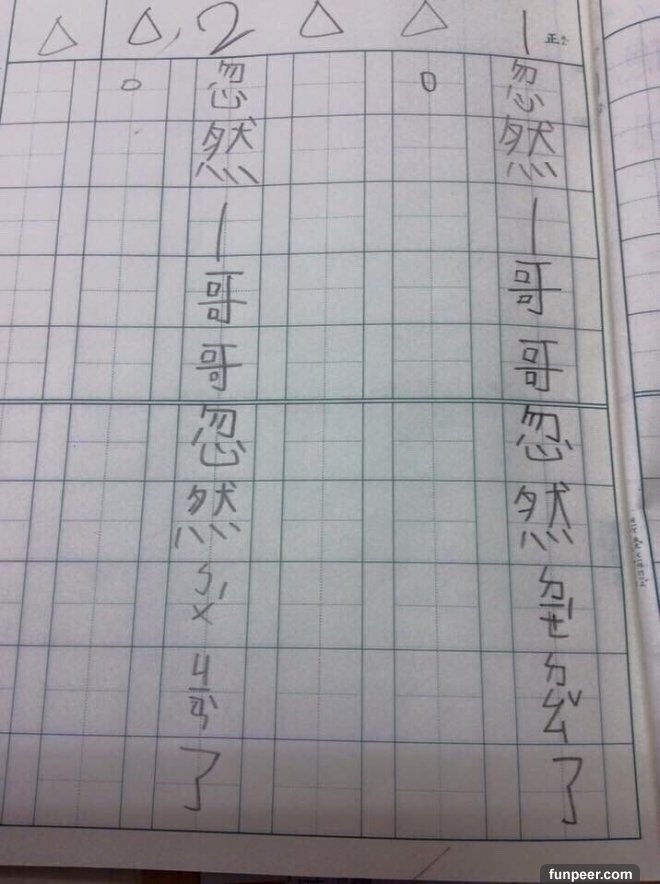 1
忽然｜哥哥忽然ㄉㄧㄝˊㄉㄠˇ了
。
2
忽然｜哥哥忽然ㄅㄨˊㄐㄧㄢˋ了
。
funpeer.com